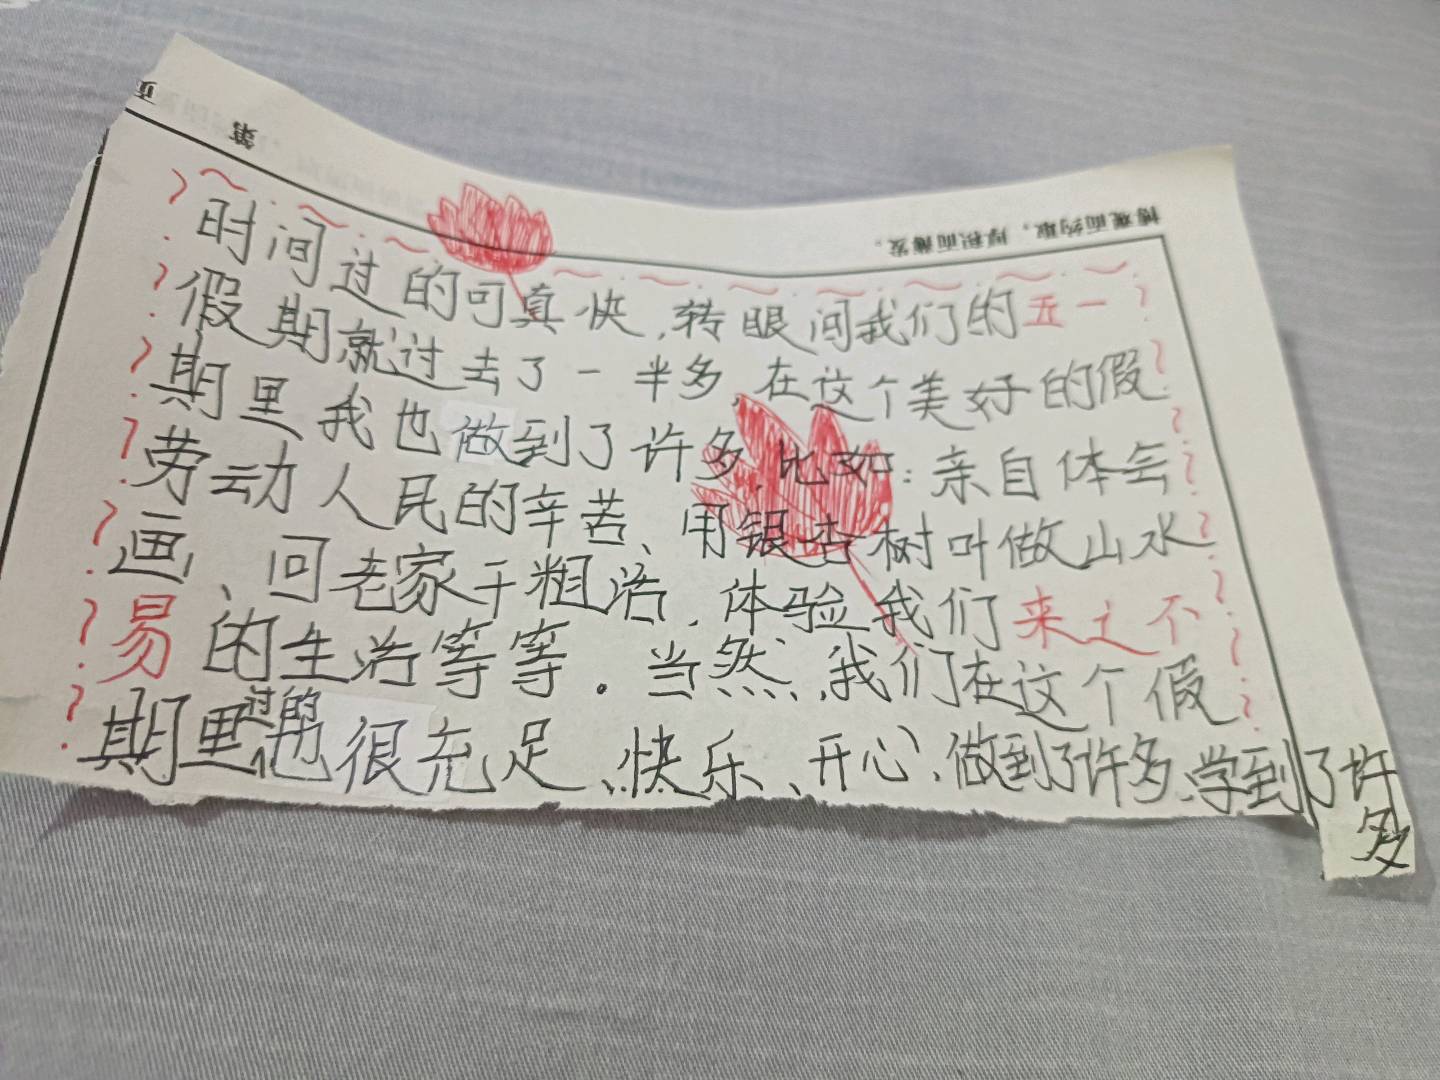 页
第
博观而约取，厚积而薄发。
时间过的可真快,转眼间我们的五一
假期就过去了一半多,在这个美好的假
期里我也做到了许多,比如:亲自体会
劳动人民的辛苦、用银杏树叶做山水
画、回老家干粗活,体验我们来之不
易的生活等等。当然,我们在这个假
期里过的也很充足、快乐、开心,做到了许多,学到了许
多